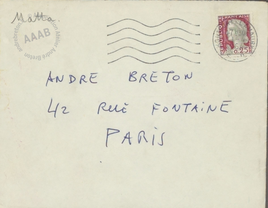 Matta
AAAB
ANDRE BRETON
42 RUE FONTAINE
PARIS